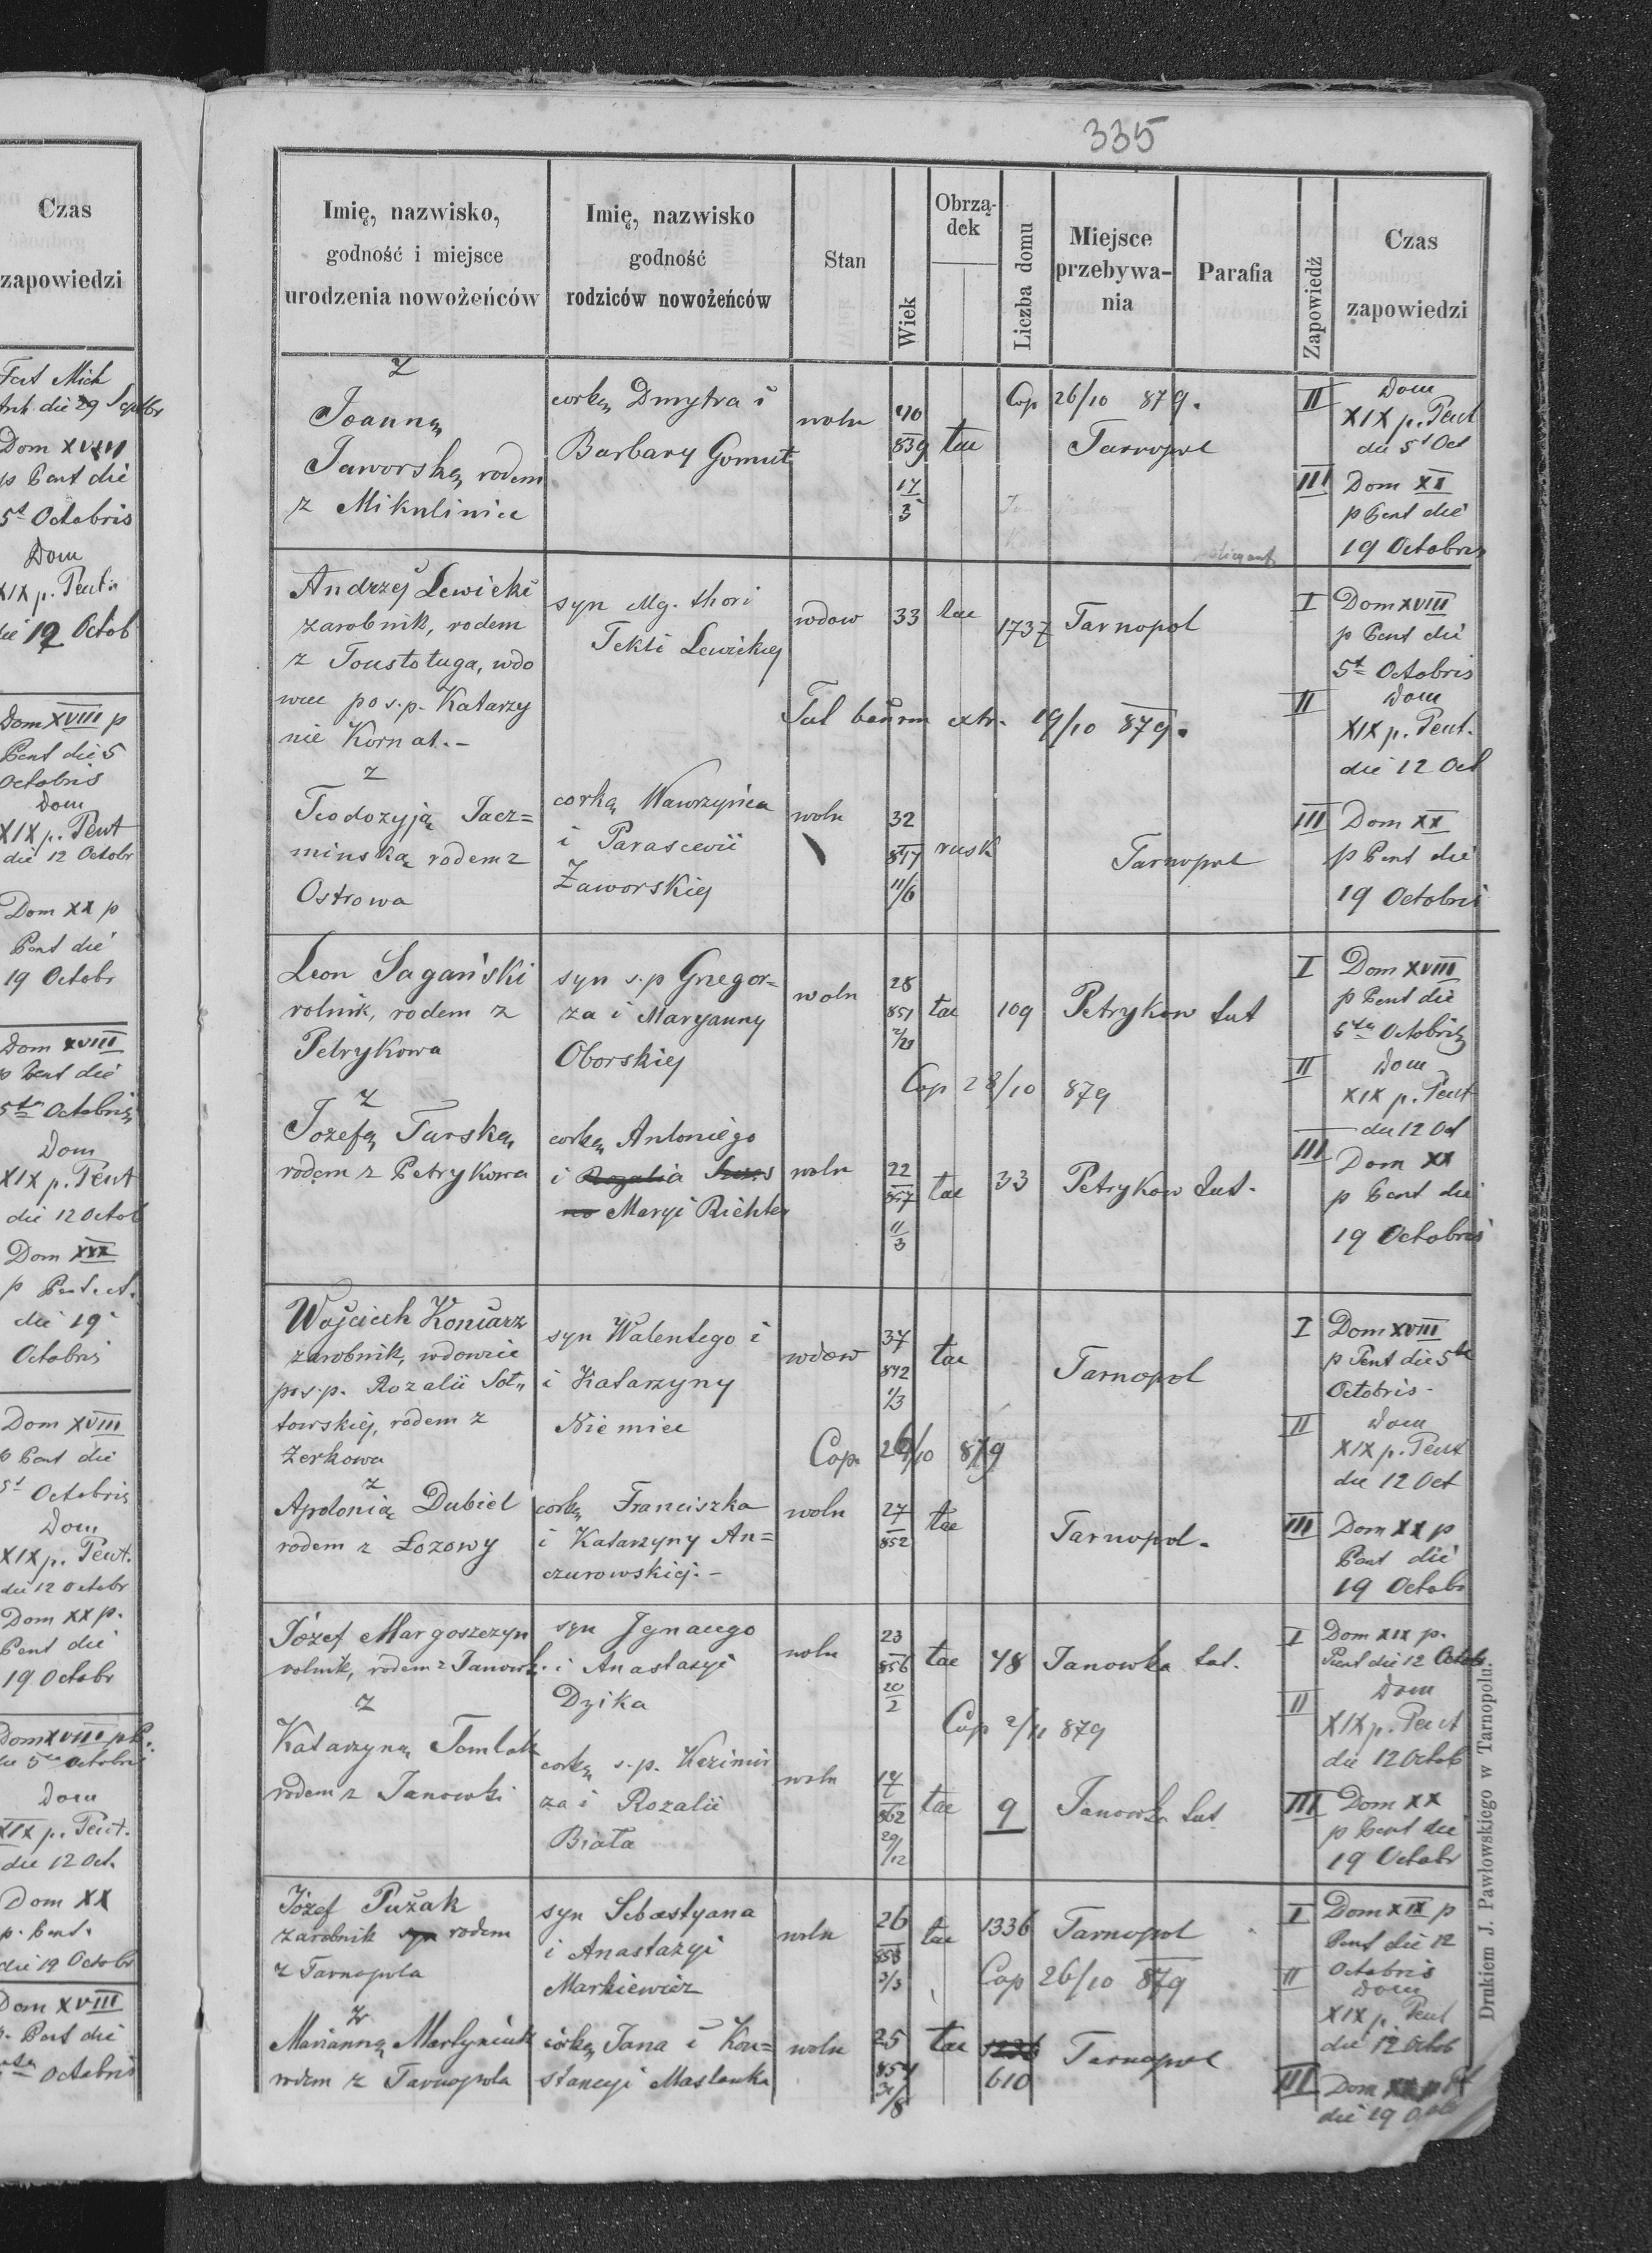 335
Czas
zapowiedzi
Fest Mich
Arch die 29 Septbr
Dom XVIII
p Pent die
5t Octobris
Dom
XIX p. Pent.
die 12 Octob
Dom XVIII p
Pent die 5
Octobris
Dom
XIX p. Pent
die 12 Octobr
Dom XX p
Pent die
19 Octobr
Dom XVIII
p Pent die
5ta Octobris
Dom
XIX p. Pent
die 12 Octob
Dom XX
p Pentect.
die 19
Octobris
Dom XVIII
p Pent die
5t Octobris
Dom
XIX p. Pent.
die 12 Octobr
Dom XX p.
Pent die
19 Octobr
Dom XVIII p P.
die 5ta Octobris
Dom
XIX p. Pent.
die 12 Oct.
Dom XX
p. Pent.
die 19 Octobr
Dom XVIII
p. Pent die
Octobris
Imię, nazwisko,
godność i miejsce
urodzenia nowożeńców
Imię, nazwisko
godność
rodziców nowożeńców
Stan
Wiek
Obrzą-
dek
Liczba domu
Miejsce
przebywa-
nia
Parafia
Zapowiedź
Czas
zapowiedzi
z
Joanną
Jaworską rodem
z Mikuliniec
corką Dmytra i
Barbary Gomut
woln
40
839
17
3
łac
Cop 26/10 879.
Tarnopol
II Dom
XIX p. Pent
die 5t Oct
III Dom XX
p Pent die
19 Octobris
Andrzej Lewicki
zarobnik, rodem
z Toustoługa, wdo
wiec po s.p. Katarzy
nie Kornat.-
syn Mg. thori
Tekli Lewickiej
wdow
33
łac
1737
Tarnopol
19/10 879.
I Dom XVIII
p Pent die
5t Octobris
II Dom
XIX p. Pent.
die 12 Oct
z
Teodozyją Jacz=
minską rodem z
Ostrowa
corką Wawrzyńca
i Parascewii
Zaworskiej
woln
32
847
11/6
rusk
Tarnopol
III Dom XX
p Pent die
19 Octobris
Leon Sagański
rolnik, rodem z
Petrykowa
syn s.p Grzegor=
za i Maryanny
Oborskiej
woln
28
851
łac
109
Petrykow Łat
Cop 28/10 879
I Dom XVIII
p Pent die
5ta Octobris
II Dom
XIX p. Pent
die 12 Oct
z
Jozefą Turską
rodem z Petrykowa
corką Antoniego
i Rozalia
Maryi Richter
woln
22
857
11
3
łac
33
Petrykow Łat.
III Dom XX
p Pent die
19 Octobris
Wojciech Koniarz
zarobnik, wdowiec
po s.p. Rozalii Soł„
towskiej, rodem z
Zerkowa
syn Walentego i
i Katarzyny
Niemiec
wdow
37
842
1/3
łac
Tarnopol
Cop. 26/10 879
I Dom XVIII
p Pent die 5ta
Octobris.
II Dom
XIX p. Pent
die 12 Oct
z
Apolonią Dubiel
rodem z Łozowy
corką Franciszka
i Katarzyny An=
czurowskiej.-
woln
27
852
łac
Tarnopol.
III Dom XX p
Pent die
19 Octobr
Józef Margoszczyn
rolnik, rodem z Janowk.
syn Ignacego
i Anastazyi
Dzika
woln
23
856
20
2
łac
48
Janowka Łat.
Cop 2/11 879
I Dom XIX p.
Pent die 12 Octobr.
II Dom
XIX p. Pent
die 12 Octob
z
Katarzyną Tomlak
rodem z Janowki
corką s.p. Kazimir
za i Rozalii
Biała
woln
17
862
29/12
łac
9
Janowka Łat
III Dom XX
p Pent die
19 Octobr
Józef Pużak
zarobnik syn rodem
z Tarnopola
syn Sebastyana
i Anastazyi
Markiewicz
woln
26
853
3/3
łac
1336
Tarnopol
Cop 26/10 879
I Dom XIX p
Pent die 12
Octobris
II Dom
XIX p. Pent
die 12 Octob
z
Marianną Martyniuk
rodem z Tarnopola
córką Jana i Kon=
stancyi Maslanka
woln
25
854
31/8
łac
1236
610
Tarnopol
III Dom XX p Pt
die 19 Octo
Drukiem J. Pawłowskiego w Tarnopolu.